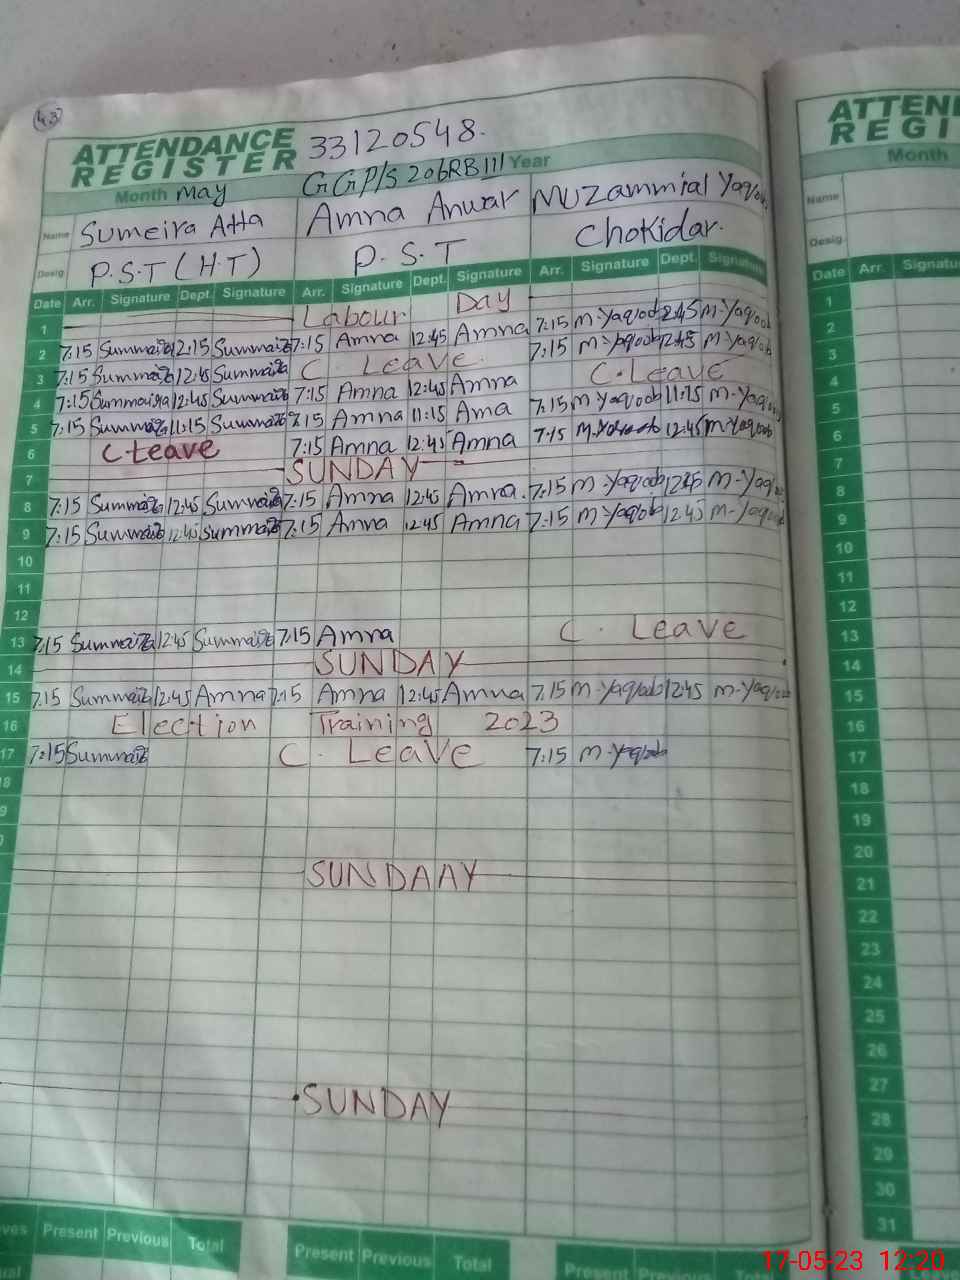 43
ATTENDANCE REGISTER 33120548.
Month May GGP/S 206RB III Year
Name Sumeira Atta Amna Anwar Muzammial Yaqoob
Desig P.S.T (H.T) P.S.T Chokidar.
Date Arr. Signature Dept. Signature Arr. Signature Dept. Signature Arr. Signature Dept. Signature
1 Labour Day
2 7:15 Summaira 12:15 Summaira 7:15 Amna 12:45 Amna 7:15 M-Yaqoob 12:45 M-Yaqoob
3 7:15 Summaira 12:45 Summaira C Leave. 7:15 M-Yaqoob 12:45 M-Yaqoob
4 7:15 Summaira 12:45 Summaira 7:15 Amna 12:45 Amna C.Leave
5 7:15 Summaira 11:15 Summaira 7:15 Amna 11:15 Ama 7:15 M-Yaqoob 11:15 M-Yaqoob
6 C Leave 7:15 Amna 12:45 Amna 7:15 M-Yaqoob 12:45 M-Yaqoob
7 SUNDAY
8 7:15 Summaira 12:45 Summaira 7:15 Amna 12:45 Amna. 7:15 M-Yaqoob 12:45 M-Yaqoob
9 7:15 Summaira 12:45 Summaira 7:15 Amna 12:45 Amna 7:15 M-Yaqoob 12:45 M-Yaqoob
10
11
12
13 7:15 Summaira 12:45 Summaira 7:15 Amna C. Leave
14 SUNDAY
15 7:15 Summaira 12:45 Amna 7:15 Amna 12:45 Amna 7:15 M-Yaqoob 12:45 M-Yaqoob
16 Election Training 2023
17 7:15 Summaira C. Leave 7:15 M-Yaqoob
SUNDAAY
SUNDAY
Present Previous Total Present Previous Total Present Previous Total
ATTEN
REGI
Month
Name
Desig
Date Arr. Signatu
1
2
3
4
5
6
7
8
9
10
11
12
13
14
15
16
17
18
19
20
21
22
23
24
25
26
27
28
29
30
31
17-05-23 12:20